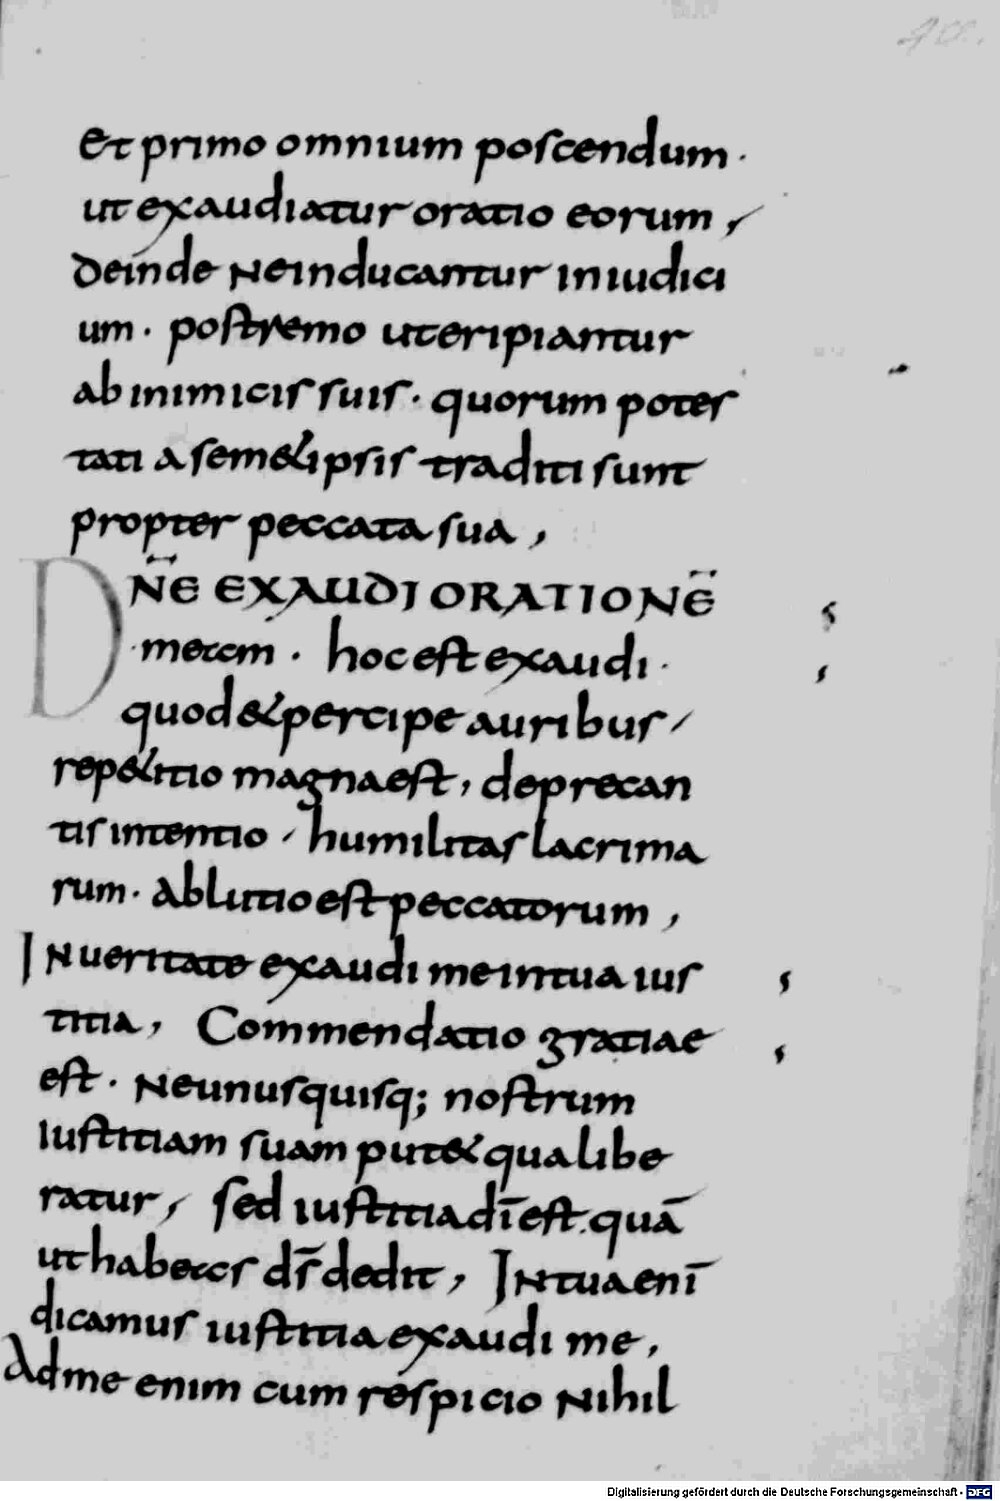 40.
et primo omnium poscendum ·
ut exaudiatur oratio eorum,
deinde ne inducantur in iudici
um · postremo ut eripiantur
ab inimicis suis · quorum potes
tati a sem&ipsis traditi sunt
propter peccata sua,
DN̄E EXAUDI ORATIONĒ
meam · hoc est exaudi ·
quod & percipe auribus,
rep&itio magna est, deprecan
tis intentio, humilitas lacrima
rum · ablutio est peccatorum,
In ueritate exaudi me in tua ius
titia, Commendatio gratiae
est · Ne unusquisq; nostrum
iustitiam suam put& qua libe
ratur, sed iustitia dī est. quā
ut haberes ds̄ dedit, In tua enī
dicamus iustitia exaudi me,
Ad me enim cum respicio nihil
Digitalisierung gefördert durch die Deutsche Forschungsgemeinschaft - DFG